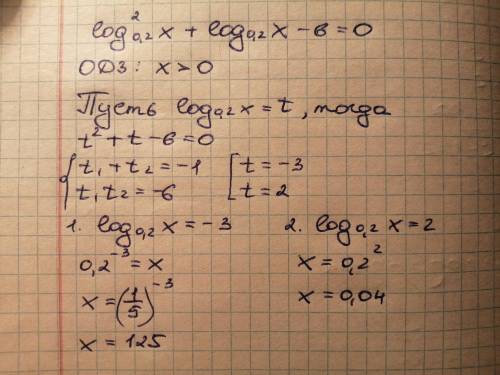 log²₀,₂ x + log₀,₂ x − 6 = 0
ОДЗ: x > 0
Пусть log₀,₂ x = t, тогда
t² + t − 6 = 0
{ t₁ + t₂ = −1 [ t = −3
{ t₁ t₂ = −6 [ t = 2
1. log₀,₂ x = −3
0,2⁻³ = x
x = (1/5)⁻³
x = 125
2. log₀,₂ x = 2
x = 0,2²
x = 0,04